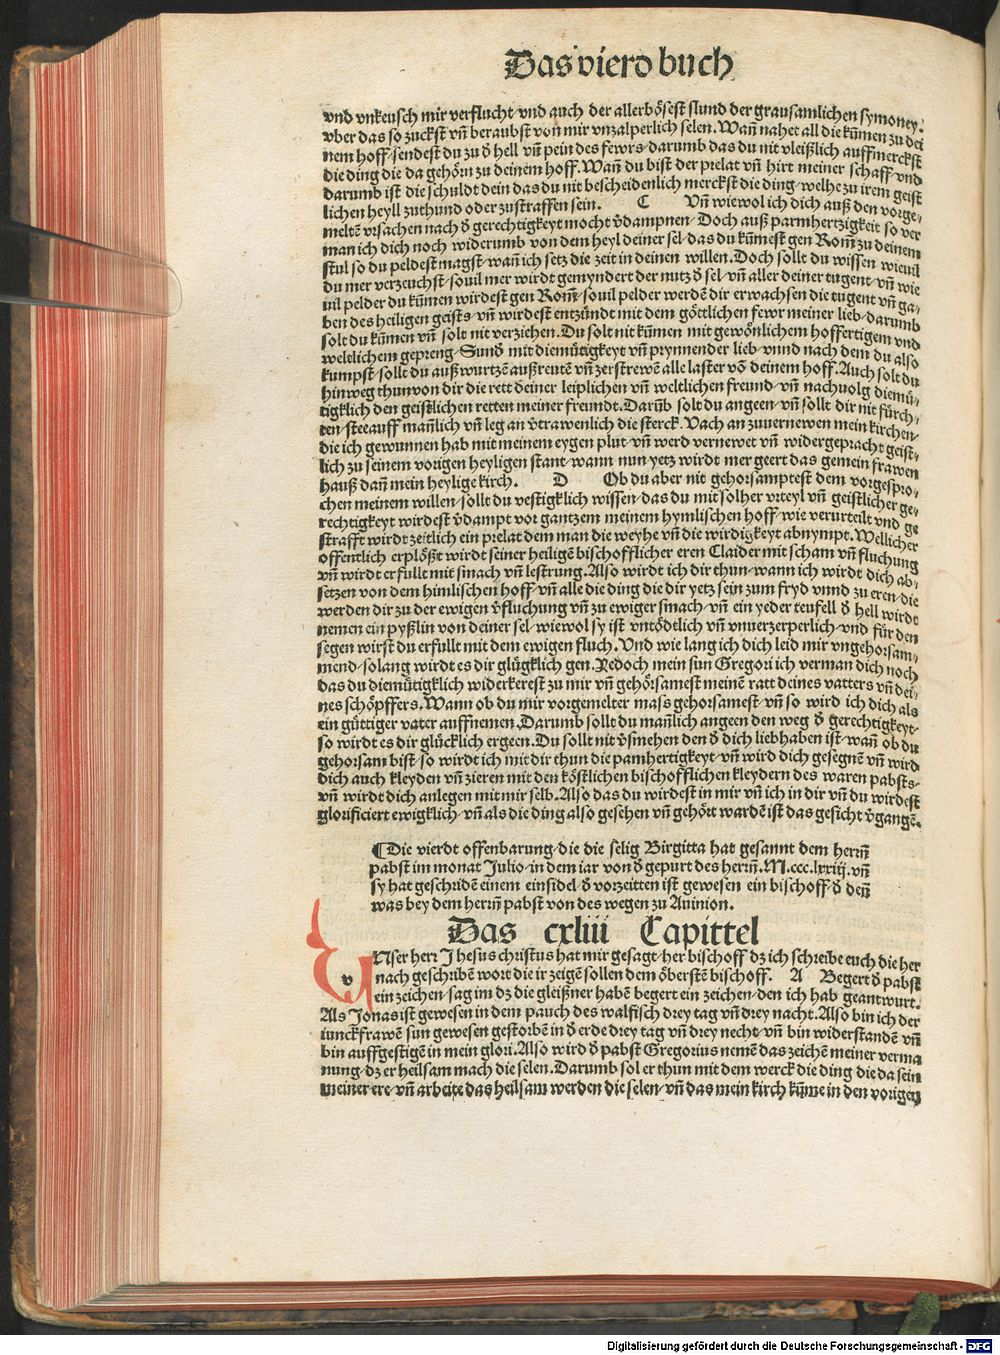 Das vierd buch
vnd vnkeusch mir verflucht⸗vnd auch der allerbösest slund der grausamlichen symoney.
vber das so zuckst vñ beraubst von mir vnzalperlich selen. Wañ nahet all die kũmen zu dei
nem hoff⸗sendest du zu d̕ hell vñ pein des fewrs⸗darumb das du nit vleißlich auffmerckst
die ding die da gehörn zu deinem hoff. Wañ du bist der prelat vñ hirt meiner schaff⸗vnd
darumb ist die schuldt dein das du nit bescheidenlich merckst die ding⸗welhe zu irem geist
lichen heyll zuthund oder zustraffen sein. C Vñ wiewol ich dich auß den vorge⸗
meltẽ vrsachen nach d̕ gerechtigkeyt mocht v̕dampnen⸗Doch auß parmhertzigkeit so ver
man ich dich noch widerumb von dem heyl deiner sel⸗das du kũmest gen Rom̃ zu deinem
stul so du peldest magst⸗wañ ich setz die zeit in deinen willen. Doch sollt du wissen wieuil
du mer verzeuchst⸗souil mer wirdt gemyndert der nutz d̕ sel⸗vñ aller deiner tugent⸗vñ wie
uil pelder du kũmen wirdest gen Rom̃⸗souil pelder werdẽ dir erwachsen die tugent vñ ga⸗
ben des heiligen geists⸗vñ wirdest entzündt mit dem göttlichen fewr meiner lieb⸗darumb
solt du kũmen vñ solt nit verziehen. Du solt nit kũmen mit gewönlichem hoffertigem vnd
weltlichem gepreng⸗Sund̕ mit diemütigkeyt vñ prynnender lieb⸗vnnd nach dem du also
kumpst⸗sollt du außwurtzẽ außreutẽ vñ zerstrewẽ alle laster võ deinem hoff. Auch solt du
hinweg thun von dir die rett deiner leiplichen vñ weltlichen freund⸗vñ nachuolg diemü⸗
tigklich den geistlichen retten meiner freundt. Darũb solt du angeen⸗vñ sollt dir nit fürch⸗
ten⸗stee auff mañlich vñ leg an v̕trawenlich die sterck. Vach an zuuernewen mein kirchen⸗
die ich gewunnen hab mit meinem eygen plut⸗vñ werd vernewet vñ widergepracht geist⸗
lich zu seinem vorigen heyligen stant⸗wann nun yetz wirdt mer geert das gemein frawen
hauß dañ mein heylige kirch. D Ob du aber nit gehorsamptest dem vorgespro⸗
chen meinem willen⸗sollt du vestigklich wissen⸗das du mit solher vrteyl vñ geistlicher ge⸗
rechtigkeyt wirdest v̕dampt vor gantzem meinem hymlischen hoff⸗wie verurteilt vnd ge
strafft wirdt zeitlich ein prelat dem man die weyhe vñ die wirdigkeyt abnympt. Wellicher
offentlich erplößt wirdt seiner heiligẽ bischofflicher eren Claider mit scham vñ fluchung
vñ wirdt erfullt mit smach vñ lestrung. Also wirdt ich dir thun⸗wann ich wirdt dich ab⸗
setzen von dem himlischen hoff⸗vñ alle die ding die dir yetz sein zum fryd vnnd zu eren⸗die
werden dir zu der ewigen v̕fluchung vñ zu ewiger smach⸗vñ ein yeder teufell d̕ hell wirdt
nemen ein pyßlin von deiner sel⸗wiewol sy ist vntödtlich vñ vnuerzerperlich⸗vnd für den
segen wirst du erfullt mit dem ewigen fluch. Vnd wie lang ich dich leid mir vngehorsam⸗
mend⸗solang wirdt es dir glügklich gen. Yedoch mein sun Gregori ich verman dich noch
das du diemütigklich widerkerest zu mir vñ gehörsamest meinẽ ratt deines vatters vñ dei⸗
nes schöpffers. Wann ob du mir vorgemelter mass gehorsamest⸗vñ so wird ich dich als
ein güttiger vater auffnemen. Darumb sollt du mañlich angeen den weg d̕ gerechtigkeyt⸗
so wirdt es dir glücklich ergeen. Du sollt nit v̕smehen den d̕ dich liebhaben ist⸗wañ ob du
gehorsam bist⸗so wirdt ich mit dir thun die parmhertigkeyt⸗vñ wird dich gesegnẽ vñ wird
dich auch kleyden vñ zieren mit den köstlichen bischofflichen kleydern des waren pabsts⸗
vñ wirdt dich anlegen mit mir selb. Also das du wirdest in mir vñ ich in dir vñ du wirdest
glorificiert ewigklich⸗vñ als die ding also gesehen vñ gehört wardẽ ist das gesicht v̕gangẽ.
¶Die vierdt offenbarung⸗die die selig Birgitta hat gesannt dem herrñ
pabst im monat Julio⸗in dem iar von d̕ gepurt des herrñ. M.ccc.lxxiij. vñ
sy hat geschribẽ einem einsidel⸗d̕ vorzeitten ist gewesen ein bischoff⸗d̕ deñ
was bey dem herrñ pabst von des wegen zu Auinion.
Das cxliii Capittel
VNser herr Jhesus christus hat mir gesagt⸗her bischoff dz ich schreibe euch die her
nach geschribẽ wort die ir zeigẽ sollen dem öberstẽ bischoff. A Begert d̕ pabst
ein zeichen⸗sag im dz die gleißner habẽ begert ein zeichen⸗den ich hab geantwurt.
Als Jonas ist gewesen in dem pauch des walfisch drey tag vñ drey nacht. Also bin ich der
iunckfrawẽ sun gewesen gestorbẽ in d̕ erde drey tag vñ drey necht⸗vñ bin widerstandẽ vñ
bin auffgestigẽ in mein glori. Also wird d̕ pabst Gregorius nemẽ das zeichẽ meiner verma
nung⸗dz er heilsam mach die selen. Darumb sol er thun mit dem werck die ding die da sein
meiner ere⸗vñ arbeite das heilsam werden die selen⸗vñ das mein kirch kũme in den vorigen
Digitalisierung gefördert durch die Deutsche Forschungsgemeinschaft - DFG